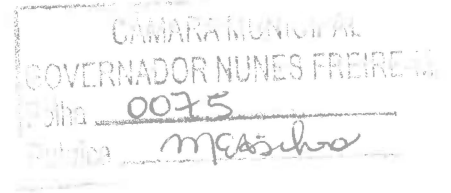 CÂMARA MUNICIPAL
GOVERNADOR NUNES FREIRE
Folha 0075
Rubrica